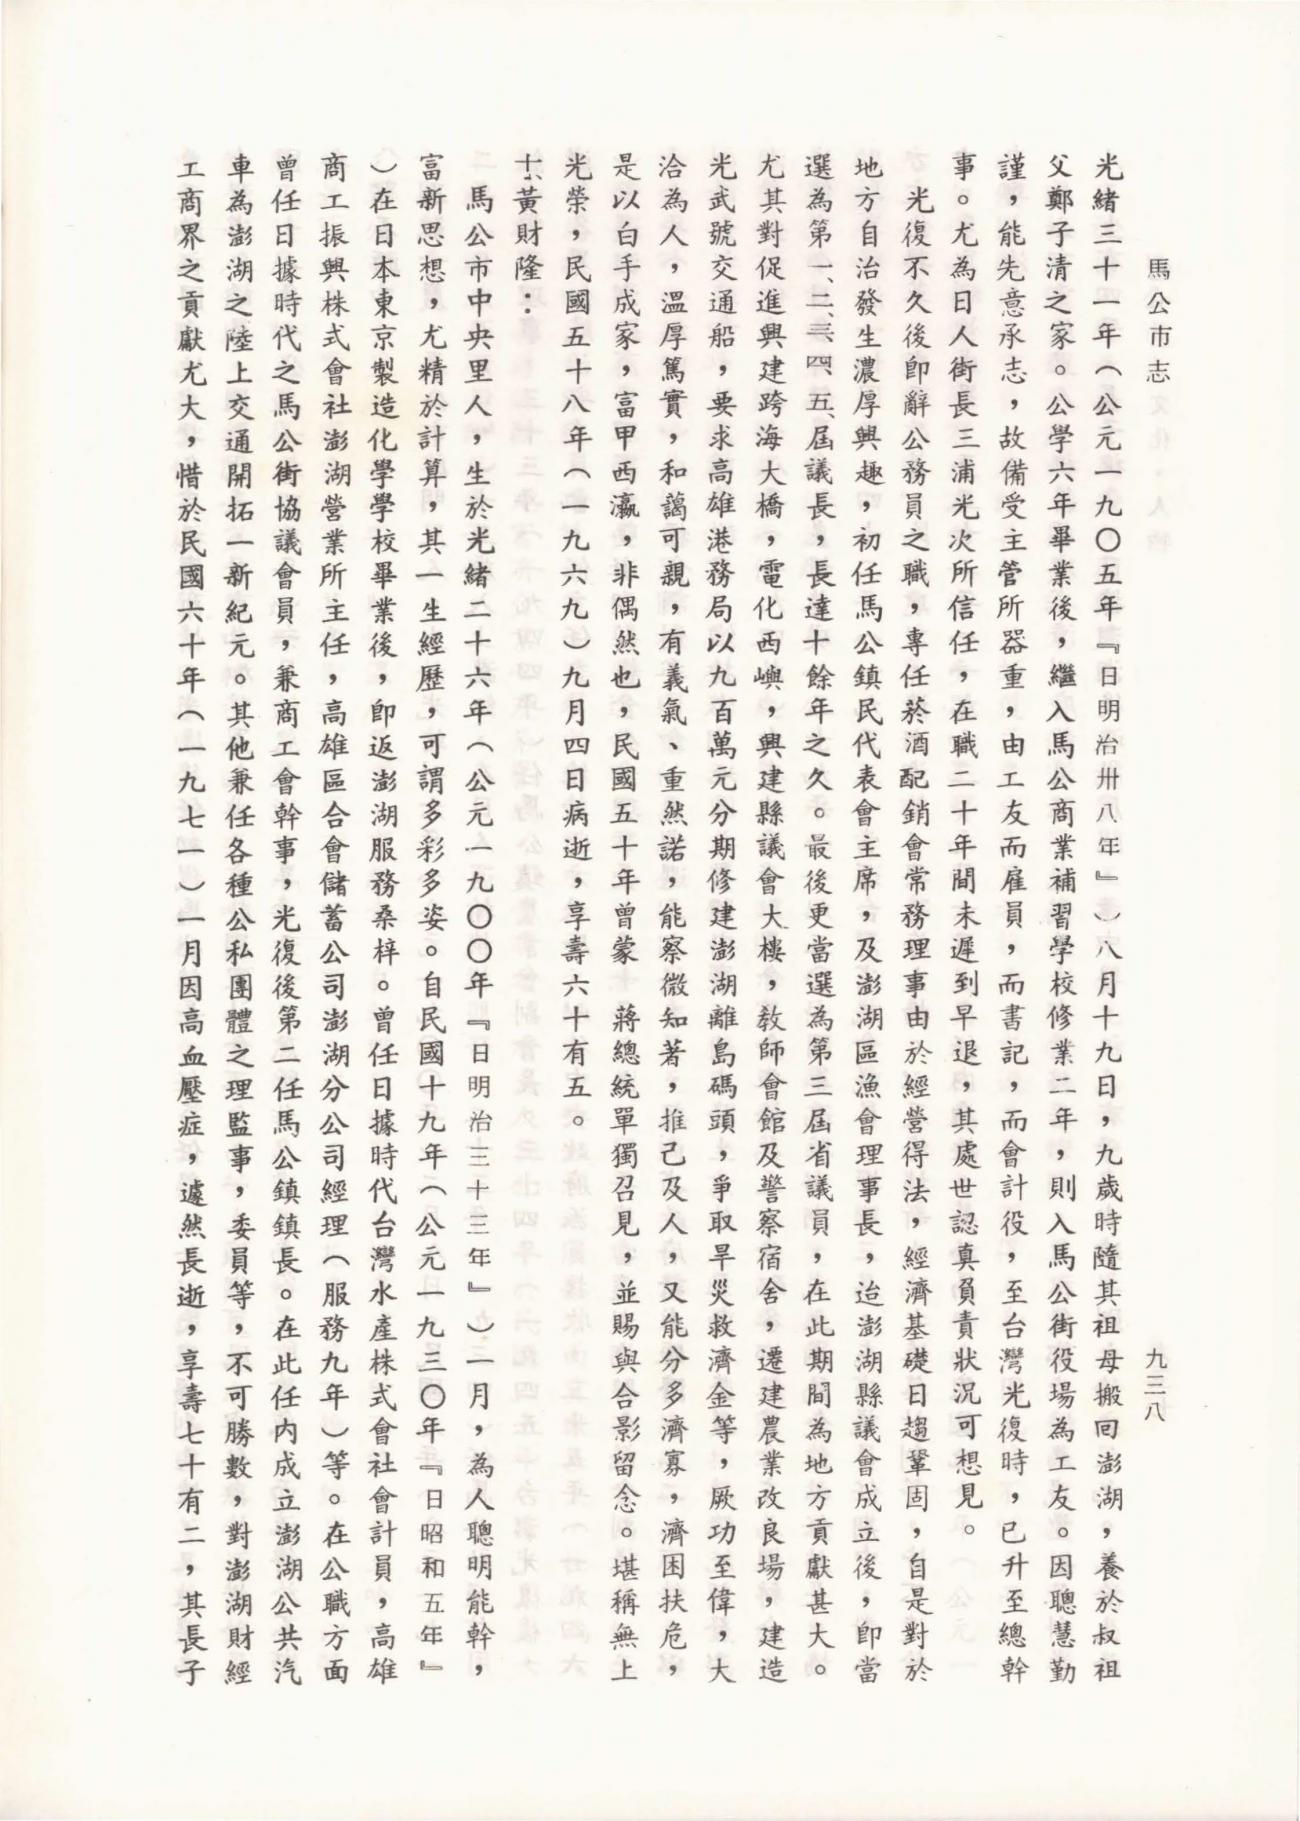 馬公市志
九三八
光緒三十一年（公元一九〇五年『日明治卅八年』）八月十九日，九歲時隨其祖母搬回澎湖，養於叔祖
父鄭子清之家。公學六年畢業後，繼入馬公商業補習學校修業二年，則入馬公街役場為工友。因聰慧勤
謹，能先意承志，故備受主管所器重，由工友而雇員，而書記，而會計役，至台灣光復時，已升至總幹
事。尤為日人街長三浦光次所信任，在職二十年間未遲到早退，其處世認真負責狀況可想見。
光復不久後即辭公務員之職，專任菸酒配銷會常務理事由於經營得法，經濟基礎日趨鞏固，自是對於
地方自治發生濃厚興趣，初任馬公鎮民代表會主席，及澎湖區漁會理事長，迨澎湖縣議會成立後，即當
選為第一、二、三、四、五、屆議長，長達十餘年之久。最後更當選為第三屆省議員，在此期間為地方貢獻甚大。
尤其對促進興建跨海大橋，電化西嶼，興建縣議會大樓，教師會館及警察宿舍，遷建農業改良場，建造
光武號交通船，要求高雄港務局以九百萬元分期修建澎湖離島碼頭，爭取旱災救濟金等，厥功至偉，大
洽為人，溫厚篤實，和藹可親，有義氣、重然諾，能察微知著，推己及人，又能分多濟寡，濟困扶危，
是以白手成家，富甲西瀛，非偶然也，民國五十年曾蒙　蔣總統單獨召見，並賜與合影留念。堪稱無上
光榮，民國五十八年（一九六九）九月四日病逝，享壽六十有五。
十、黃財隆：
馬公市中央里人，生於光緒二十六年（公元一九〇〇年『日明治三十三年』）一月，為人聰明能幹，
富新思想，尤精於計算，其一生經歷，可謂多彩多姿。自民國十九年（公元一九三〇年『日昭和五年』
）在日本東京製造化學學校畢業後，即返澎湖服務桑梓。曾任日據時代台灣水產株式會社會計員，高雄
商工振興株式會社澎湖營業所主任，高雄區合會儲蓄公司澎湖分公司經理（服務九年）等。在公職方面
曾任日據時代之馬公街協議會員，兼商工會幹事，光復後第二任馬公鎮鎮長。在此任內成立澎湖公共汽
車為澎湖之陸上交通開拓一新紀元。其他兼任各種公私團體之理監事，委員等，不可勝數，對澎湖財經
工商界之貢獻尤大，惜於民國六十年（一九七一）一月因高血壓症，遽然長逝，享壽七十有二，其長子